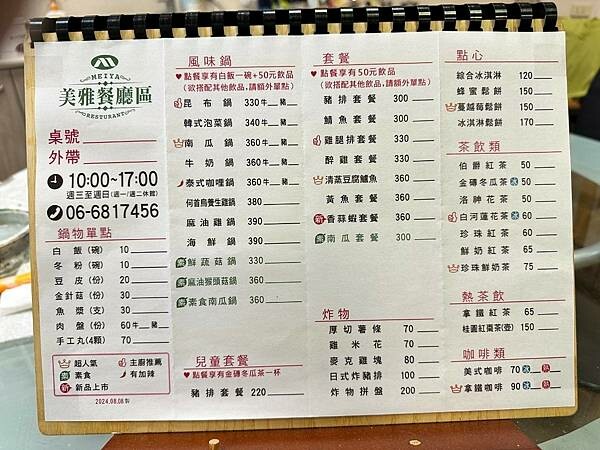 MEIYA
美雅餐廳區
RESTURANT
桌號
外帶
10:00~17:00
週三至週日(週一/週二休館)
06-6817456
鍋物單點
白飯(碗) 10
冬粉(碗) 10
豆皮(份) 20
金針菇(份) 30
魚漿(支) 30
肉盤(份) 60牛 豬
手工丸(4顆) 70
超人氣 主廚推薦
素 素食 有加辣
新 新品上市
2024.08.08製
風味鍋
♥點餐享有白飯一碗+50元飲品
(欲搭配其他飲品,請額外單點)
昆布鍋 330牛 豬
韓式泡菜鍋 340牛 豬
南瓜鍋 360牛 豬
牛奶鍋 360牛 豬
泰式咖哩鍋 360牛 豬
何首烏養生雞鍋 380
麻油雞鍋 390
海鮮鍋 390
素 鮮蔬菇鍋 330
素 麻油猴頭菇鍋 360
素 素食南瓜鍋 360
兒童套餐
♥點餐享有金磚冬瓜茶一杯
豬排套餐 220
套餐
♥點餐享有50元飲品
(欲搭配其他飲品,請額外單點)
豬排套餐 300
鯖魚套餐 300
雞腿排套餐 340
醉雞套餐 340
清蒸豆腐鱸魚 360
黃魚套餐 360
新 香蒜蝦套餐 360
素 南瓜套餐 300
炸物
厚切薯條 70
雞米花 70
麥克雞塊 80
日式炸豬排 100
炸物拼盤 200
點心
綜合冰淇淋 120
蜂蜜鬆餅 150
蔓越莓鬆餅 150
冰淇淋鬆餅 170
茶飲類
伯爵紅茶 50
金磚冬瓜茶 冰 50
洛神花茶 50
白河蓮花茶 冰 60
珍珠紅茶 60
鮮奶紅茶 65
珍珠鮮奶茶 75
熱茶飲
拿鐵紅茶 65
桂圓紅棗茶(壺) 150
咖啡類
美式咖啡 70 冰 熱
拿鐵咖啡 90 冰 熱